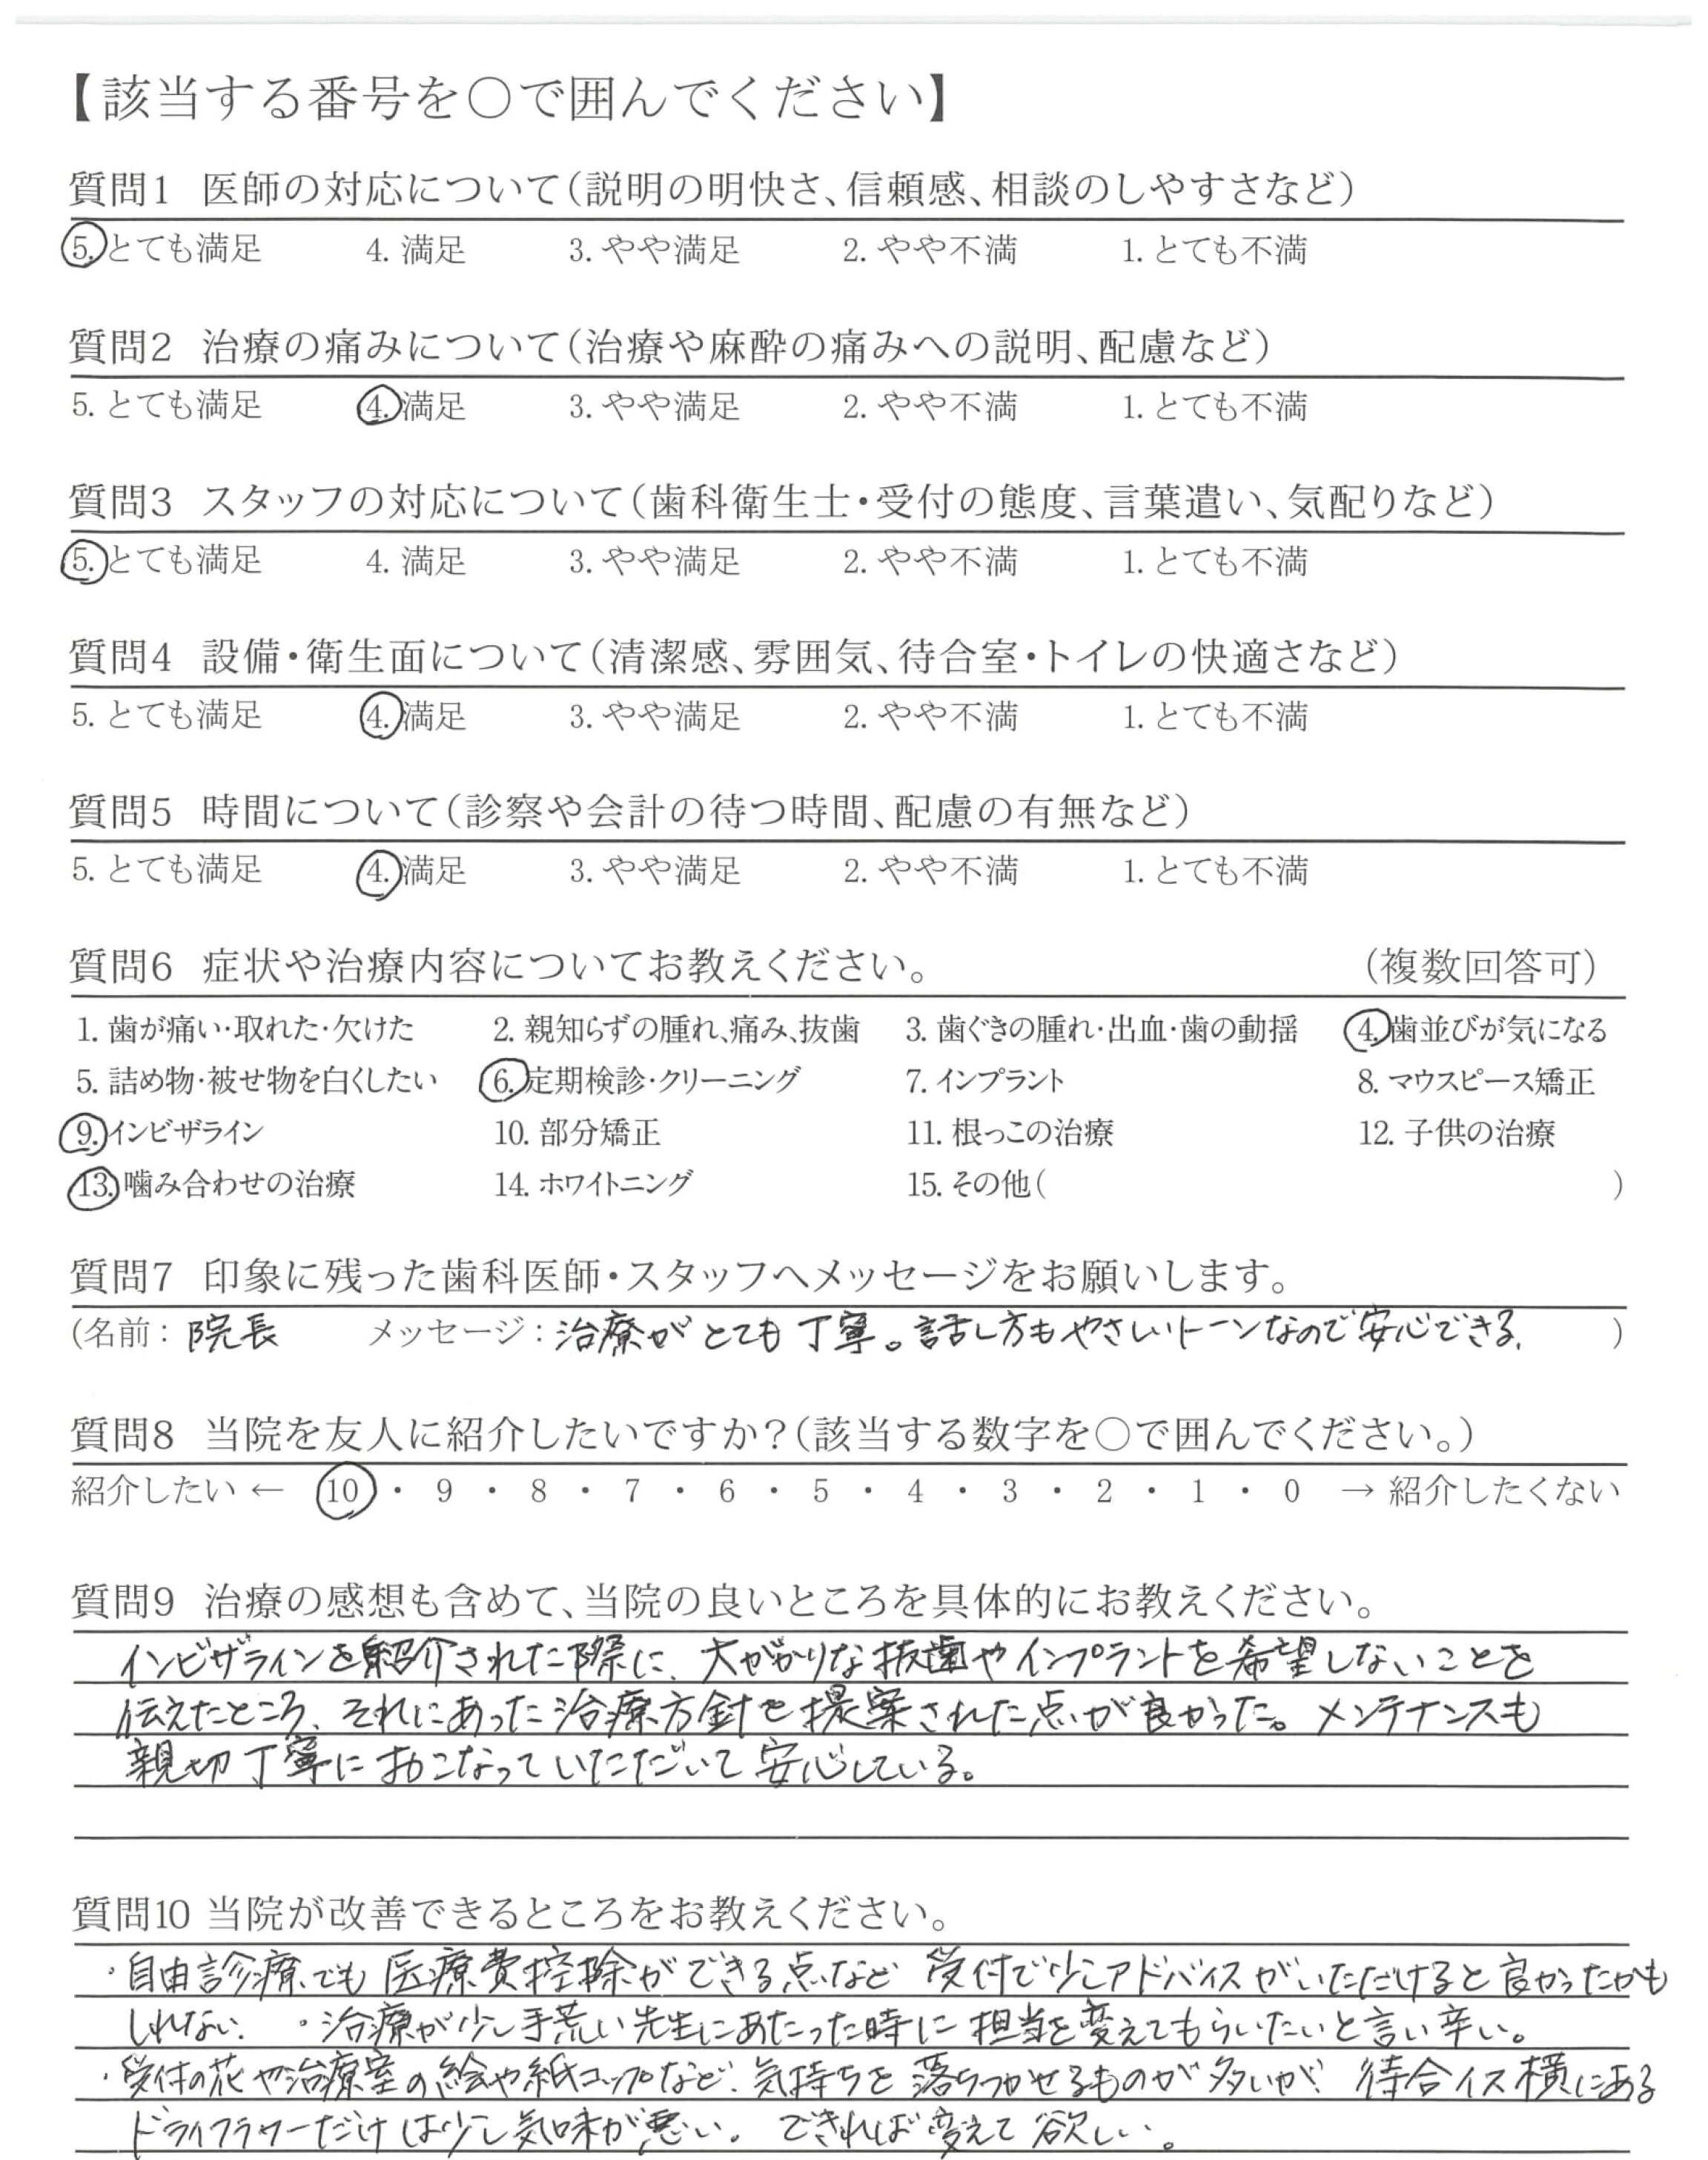 【該当する番号を○で囲んでください】
質問1 医師の対応について(説明の明快さ、信頼感、相談のしやすさなど)
5. とても満足 4. 満足 3. やや満足 2. やや不満 1. とても不満
質問2 治療の痛みについて(治療や麻酔の痛みへの説明、配慮など)
5. とても満足 4. 満足 3. やや満足 2. やや不満 1. とても不満
質問3 スタッフの対応について(歯科衛生士・受付の態度、言葉遣い、気配りなど)
5. とても満足 4. 満足 3. やや満足 2. やや不満 1. とても不満
質問4 設備・衛生面について(清潔感、雰囲気、待合室・トイレの快適さなど)
5. とても満足 4. 満足 3. やや満足 2. やや不満 1. とても不満
質問5 時間について(診察や会計の待つ時間、配慮の有無など)
5. とても満足 4. 満足 3. やや満足 2. やや不満 1. とても不満
質問6 症状や治療内容についてお教えください。 (複数回答可)
1. 歯が痛い・取れた・欠けた 2. 親知らずの腫れ、痛み、抜歯 3. 歯ぐきの腫れ・出血・歯の動揺 4. 歯並びが気になる
5. 詰め物・被せ物を白くしたい 6. 定期検診・クリーニング 7. インプラント 8. マウスピース矯正
9. インビザライン 10. 部分矯正 11. 根っこの治療 12. 子供の治療
13. 噛み合わせの治療 14. ホワイトニング 15. その他( )
質問7 印象に残った歯科医師・スタッフへメッセージをお願いします。
(名前: 院長 メッセージ: 治療がとても丁寧。話し方もやさしいトーンなので安心できる。 )
質問8 当院を友人に紹介したいですか?(該当する数字を○で囲んでください。)
紹介したい ← 10 ・ 9 ・ 8 ・ 7 ・ 6 ・ 5 ・ 4 ・ 3 ・ 2 ・ 1 ・ 0 → 紹介したくない
質問9 治療の感想も含めて、当院の良いところを具体的にお教えください。
インビザラインを紹介された際に、大がかりな抜歯やインプラントを希望しないことを
伝えたところ、それにあった治療方針を提案された点が良かった。メンテナンスも
親切丁寧におこなっていただいて安心している。
質問10 当院が改善できるところをお教えください。
・自由診療でも医療費控除ができる点など 受付で少しアドバイスがいただけると良かったかも
しれない。 ・治療が少し手荒い先生にあたった時に担当を変えてもらいたいと言い辛い。
・受付の花や治療室の絵や紙コップなど、気持ちを落ちつかせるものが多いが、待合イス横にある
ドライフラワーだけは少し気味が悪い。できれば変えて欲しい。